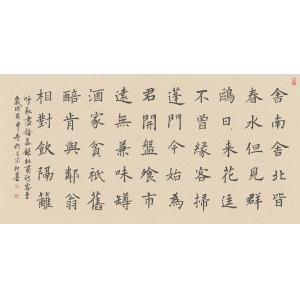 舍南舍北皆
春水但見群
鷗日來花逕
不曾緣客掃
蓬門今始為
君開盤飧市
遠無兼味罇
酒家貧祇舊
醅肯與鄰翁
相對飲隔籬
呼取盡餘盃錄杜甫詩客至
歲次丙申